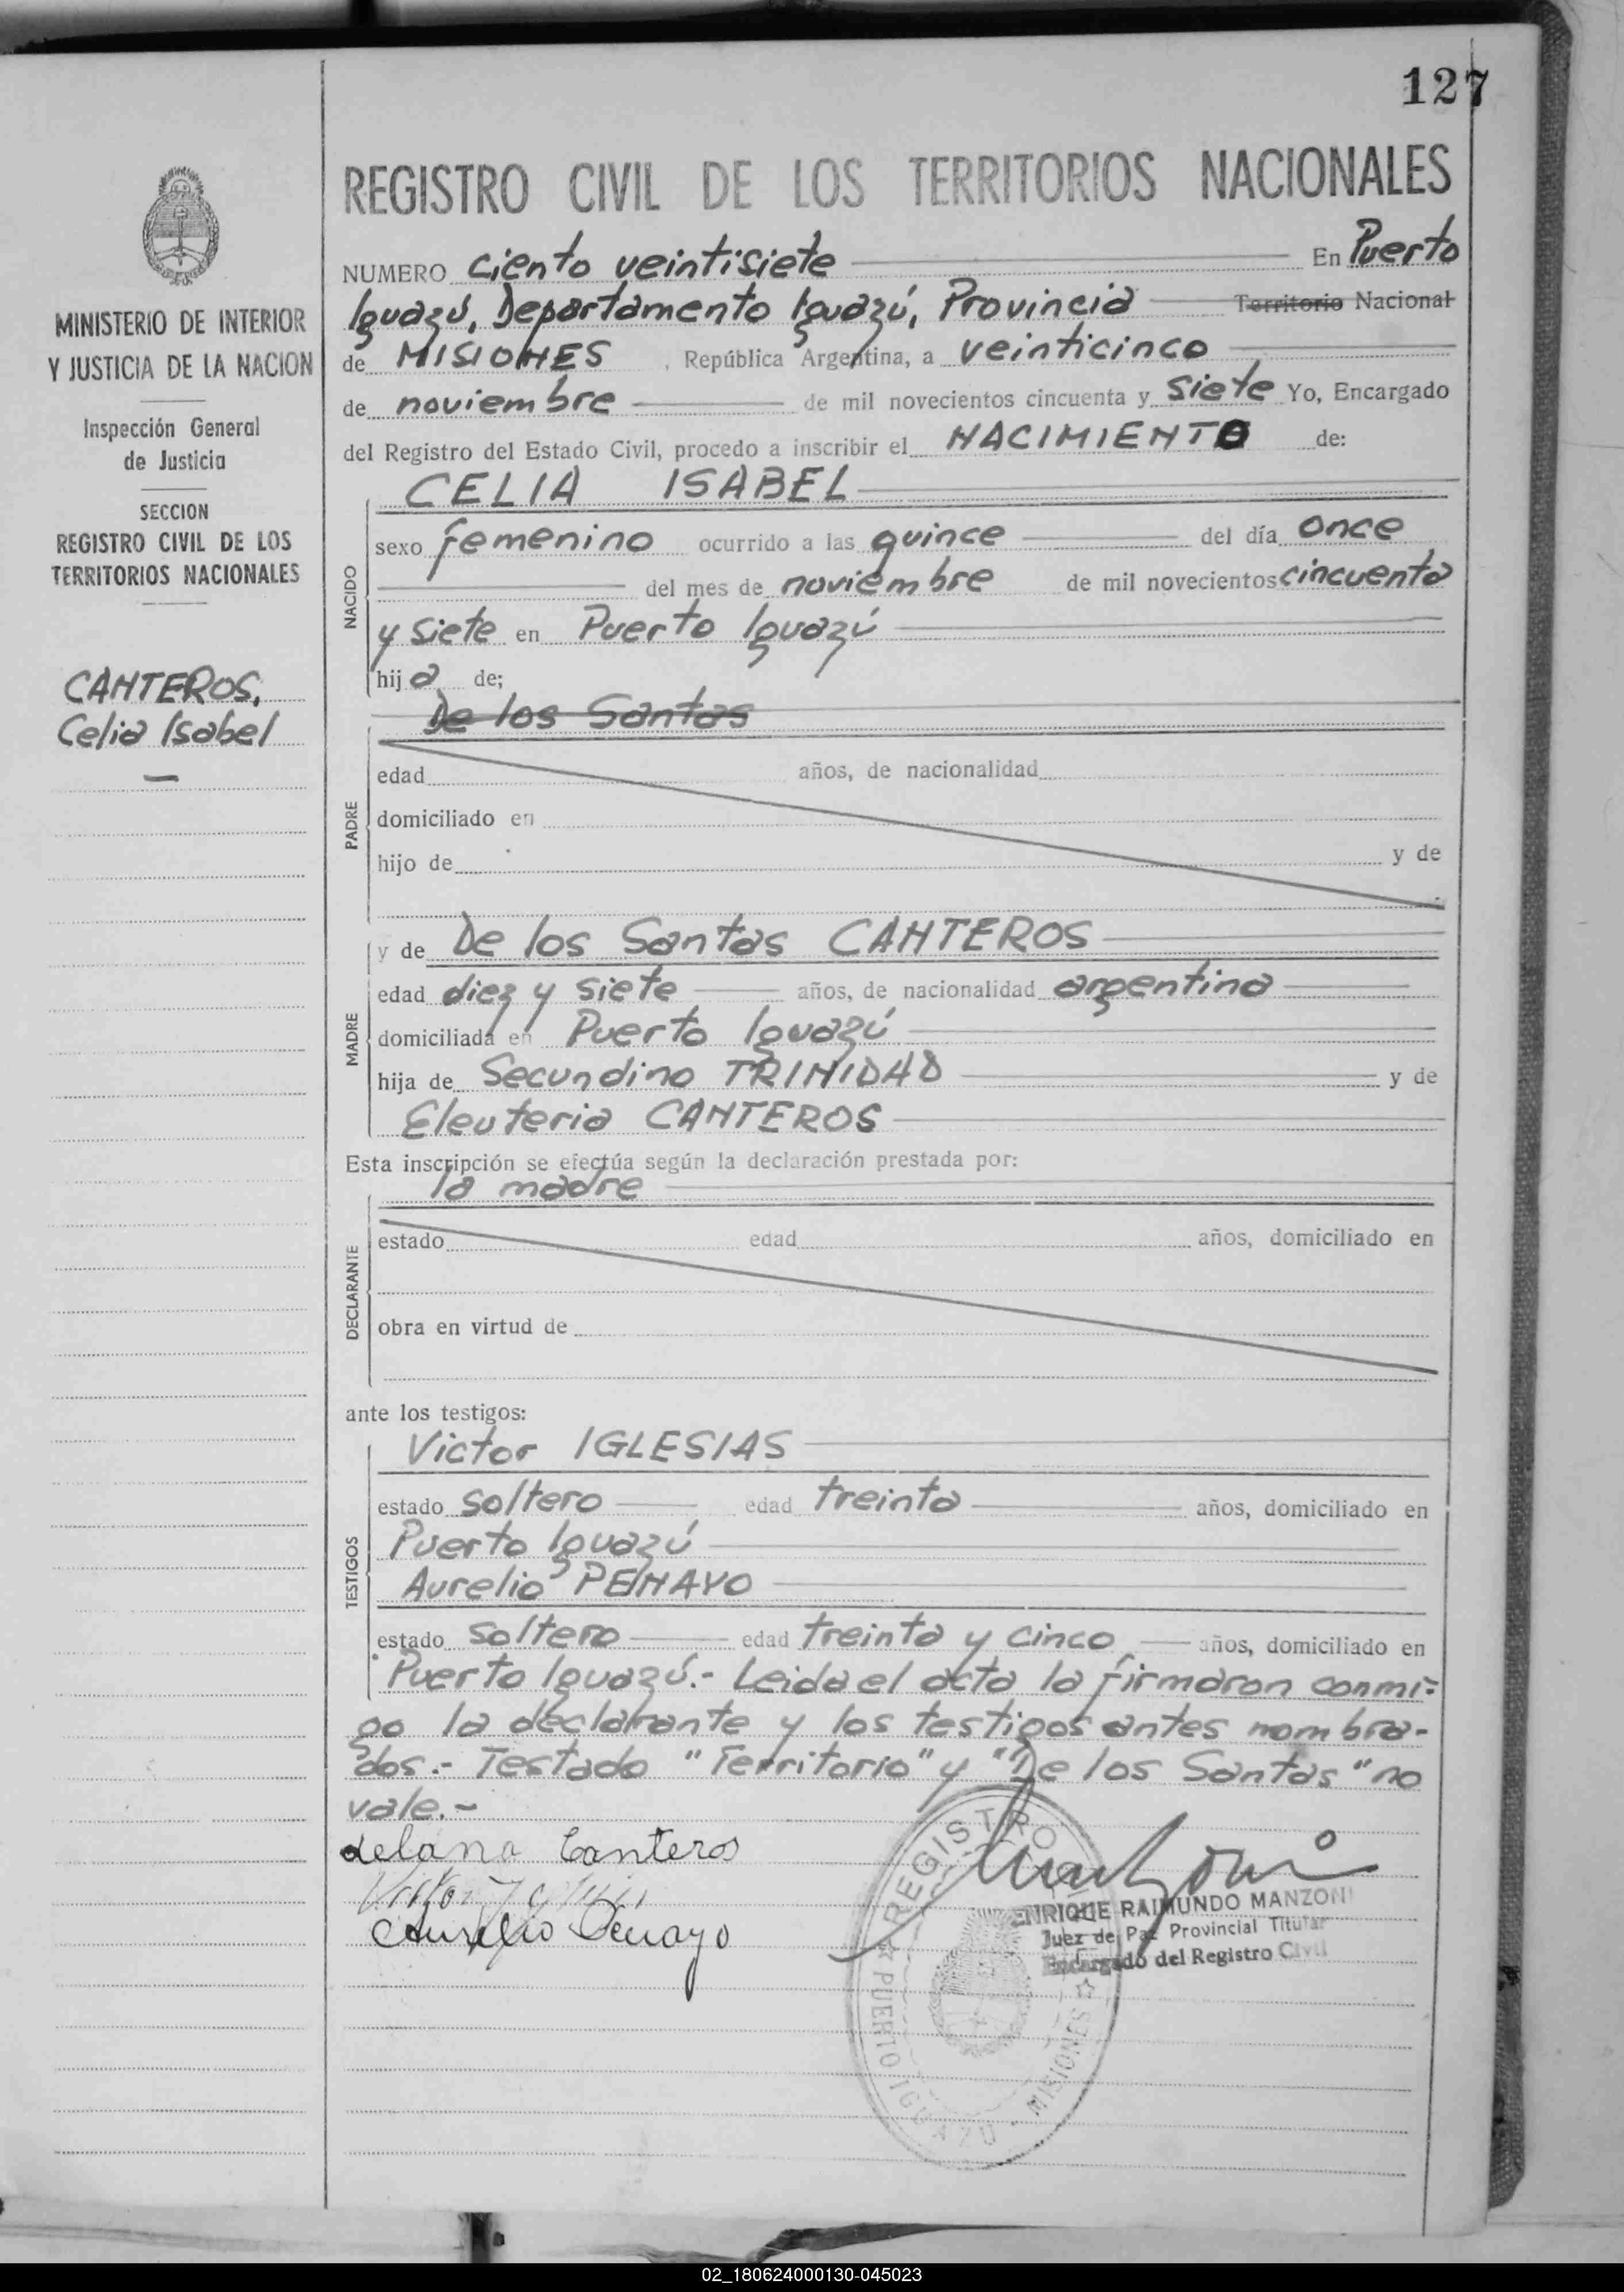 127
REGISTRO CIVIL DE LOS TERRITORIOS NACIONALES
MINISTERIO DE INTERIOR
Y JUSTICIA DE LA NACION
Inspección General
de Justicia
SECCION
REGISTRO CIVIL DE LOS
TERRITORIOS NACIONALES
CANTEROS,
Celia Isabel
NUMERO ciento veintisiete En Puerto
Iguazú, Departamento Iguazú, Provincia Territorio Nacional
de MISIONES, República Argentina, a veinticinco
de noviembre de mil novecientos cincuenta y siete Yo, Encargado
del Registro del Estado Civil, procedo a inscribir el NACIMIENTO de:
NACIDO
CELIA ISABEL
sexo femenino ocurrido a las quince del día once
del mes de noviembre de mil novecientos cincuenta
y siete en Puerto Iguazú
hija de;
PADRE
De los Santos
edad años, de nacionalidad
domiciliado en
hijo de y de
MADRE
y de De los Santos CANTEROS
edad diez y siete años, de nacionalidad argentina
domiciliada en Puerto Iguazú
hija de Secundino TRINIDAD y de
Eleuteria CANTEROS
Esta inscripción se efectúa según la declaración prestada por:
DECLARANTE
la madre
estado edad años, domiciliado en
obra en virtud de
ante los testigos:
TESTIGOS
Victor IGLESIAS
estado soltero edad treinta años, domiciliado en
Puerto Iguazú
Aurelio PENAYO
estado soltero edad treinta y cinco años, domiciliado en
Puerto Iguazú.- Leida el acta la firmaron conmi-
go la declarante y los testigos antes nombra-
dos.- Testado "Territorio" y "De los Santos" no
vale.-
Canteros
Aurelio Penayo
REGISTRO CIVIL
PUERTO IGUAZU - MISIONES
ENRIQUE RAIMUNDO MANZONI
Juez de Paz Provincial Titular
Encargado del Registro Civil
02_180624000130-045023